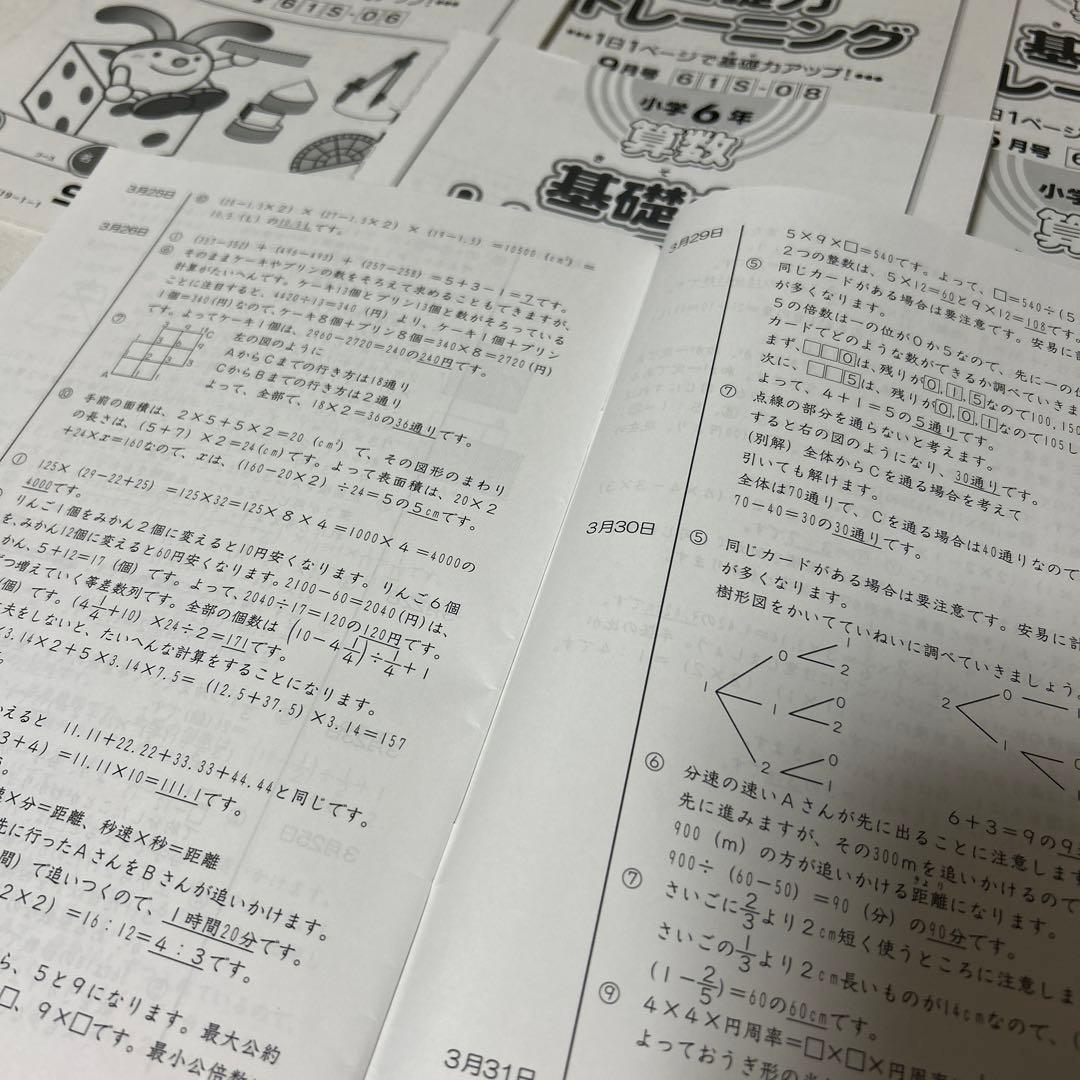 61S-06
トレーニング
1日1ページで基礎力アップ!
9月号 61S-08
小学6年
算数
基礎
基
トレー
日1ページ
5月号 6
小学
算
コース
79-1-1
3月25日
⑩ (28-1.5×2)×(27-1.5×2)×(19-1.5)=10500(cm³)=
10.5(L)の10.5Lです。
3月26日
① (357-352)+(496-493)+(257-258)=5+3-1=7です。
⑥ そのままケーキやプリンの数をそろえて求めることもできますが、
計算がたいへんです。ケーキ13個とプリン13個と数がそろっている
ことに注目すると、4420÷13=340(円)より、ケーキ1個+プリン
1個=340(円)なので、ケーキ8個+プリン8個=340×8=2720(円)
です。よってケーキ1個は、2960-2720=240の240円です。
⑦ 左の図のように
AからCまでの行き方は18通り
CからBまでの行き方は2通り
よって、全部で、18×2=36の36通りです。
⑩ 手前の面積は、2×5+5×2=20(cm²)で、その図形のまわり
の長さは、(5+7)×2=24(cm)です。よって表面積は、20×2
+24×x=160なので、xは、(160-20×2)÷24=5の5cmです。
① 125×(29-22+25)=125×32=125×8×4=1000×4=4000の
4000です。
りんご1個をみかん2個に変えると10円安くなります。りんご6個
を、みかん12個に変えると60円安くなります。2100-60=2040(円)は、
かん、5+12=17(個)です。よって、2040÷17=120の120円です。
つ増えていく等差数列です。全部の個数は(10-4 1/4)÷1/4+1
(個)です。(4 1/4+10)×24÷2=171です。
夫をしないと、たいへんな計算をすることになります。
3.14×2+5×3.14×7.5=(12.5+37.5)×3.14=157
かえると 11.11+22.22+33.33+44.44と同じです。
3+4)=11.11×10=111.1です。
速×分=距離、秒速×秒=距離
先に行ったAさんをBさんが追いかけます。
間)で追いつくので、1時間20分です。
2×2)=16:12=4:3です。
ら、5と9になります。最大公約
□、9×□です。最小公倍数
3月29日
5×9×□=540です。よって、□=540÷(5
2つの整数は、5×12=60と9×12=108です。
⑤ 同じカードがある場合は要注意です。安易に計
が多くなります。
5の倍数は一の位が0か5なので、先に一の位
カードでどのような数ができるか調べていきま
まず、□□0は、残りが0,1,5なので100,150
次に、□□5は、残りが0,0,1なので105し
よって、4+1=5の5通りです。
⑦ 点線の部分を通らないと考えます。
すると右の図のようになり、30通りです。
(別解)全体からCを通る場合を考えて
引いても解けます。
全体は70通りで、Cを通る場合は40通りなので
70-40=30の30通りです。
3月30日
⑤ 同じカードがある場合は要注意です。安易に計
が多くなります。
樹形図をかいてていねいに調べていきましょう。
1 0 1 2
1 0 2
2 0 1
2 0 1
1 0
6+3=9の9
⑥ 分速の速いAさんが先に出ることに注意します
先に進みますが、その300mを追いかけるので
900(m)の方が追いかける距離になります。
900÷(60-50)=90(分)の90分です。
⑦ さいごに2/3より2cm短く使うところに注意しま
さいごの1/3より2cm長いものが14cmなので、(
(1-2/5)=60の60cmです。
⑨ 4×4×円周率=□×□×円周率
よっておうぎ形の半
3月31日